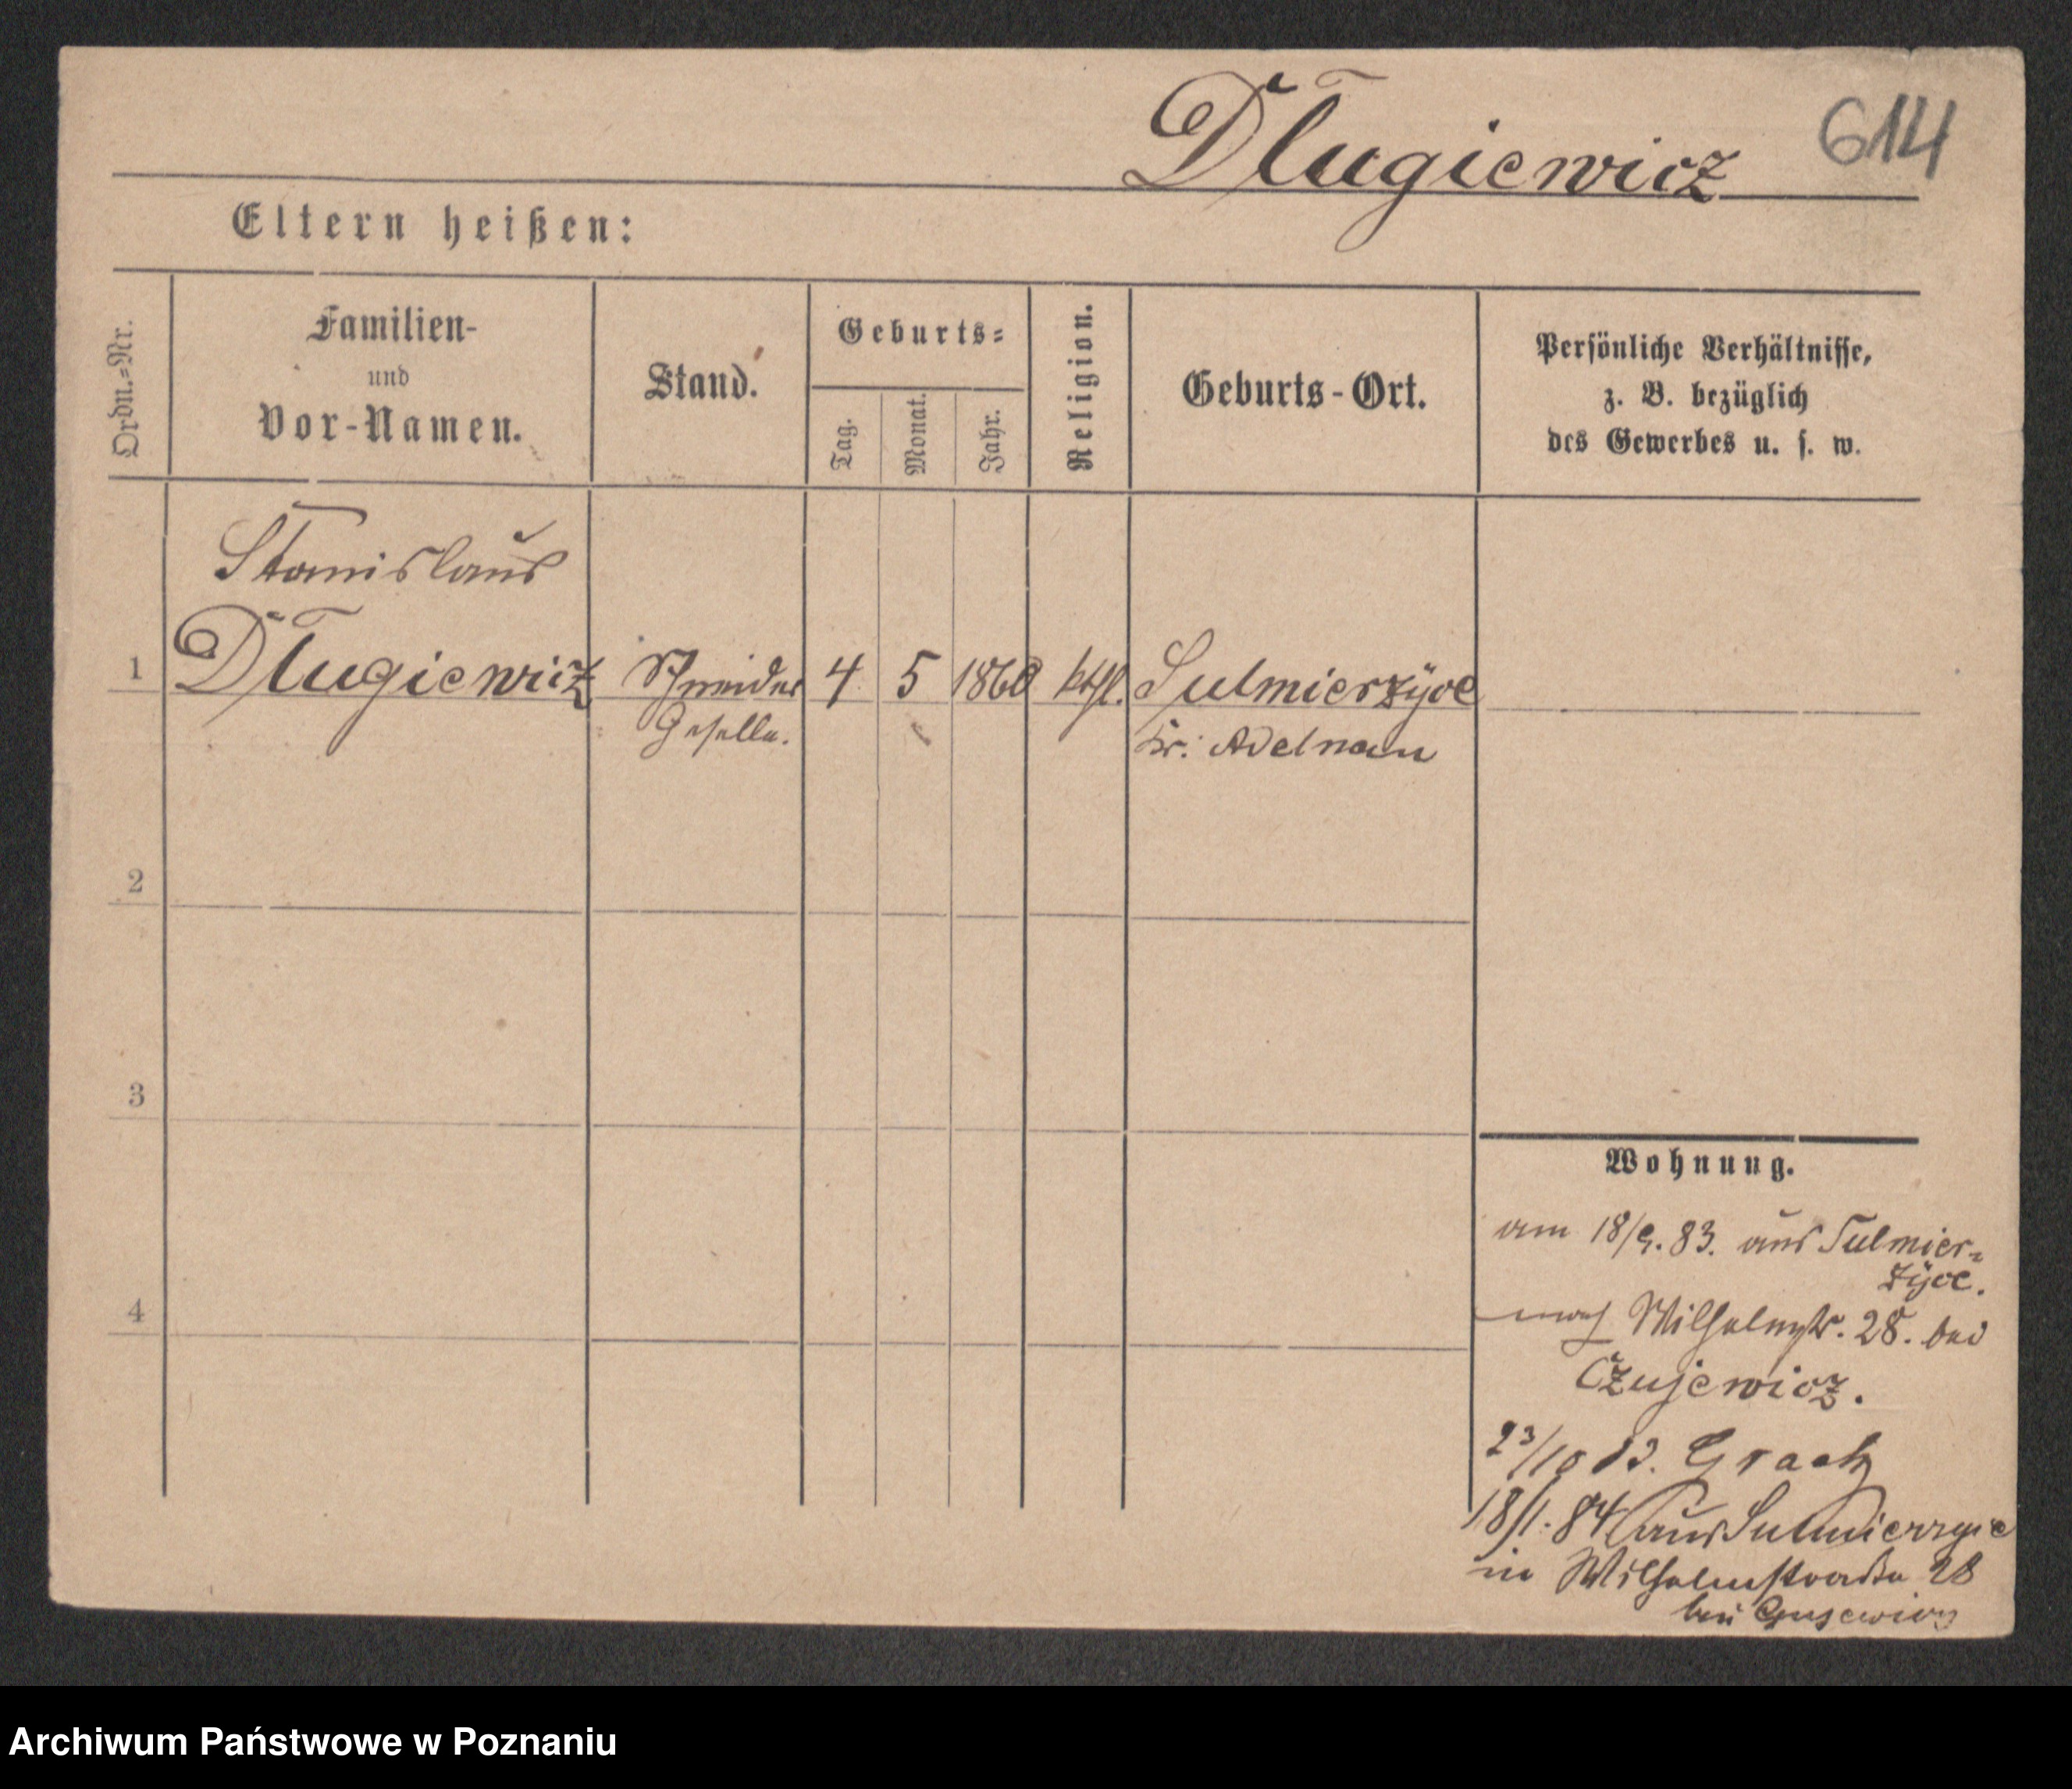 Dlugiewicz 614
Eltern heißen:
Ordn.-Nr.
Familien-
und
Vor-Namen.
Stand.
Geburts-
Tag.
Monat.
Jahr.
Religion.
Geburts-Ort.
Persönliche Verhältnisse,
z. B. bezüglich
des Gewerbes u. s. w.
Stanislaus
1 Dlugiewicz Schneider 4 5 1860 kthl. Sulmierzÿce
Geselle. Kr. Adelnau
2
3
4
Wohnung.
am 18/9. 83. aus Sulmier-
zÿce.
nach Wilhelmstr. 28. bei
Czujewicz.
23/10 83. Graetz
18/1. 84 aus Sulmierzyce
in Wilhelmstraße 28
bei
Archiwum Państwowe w Poznaniu